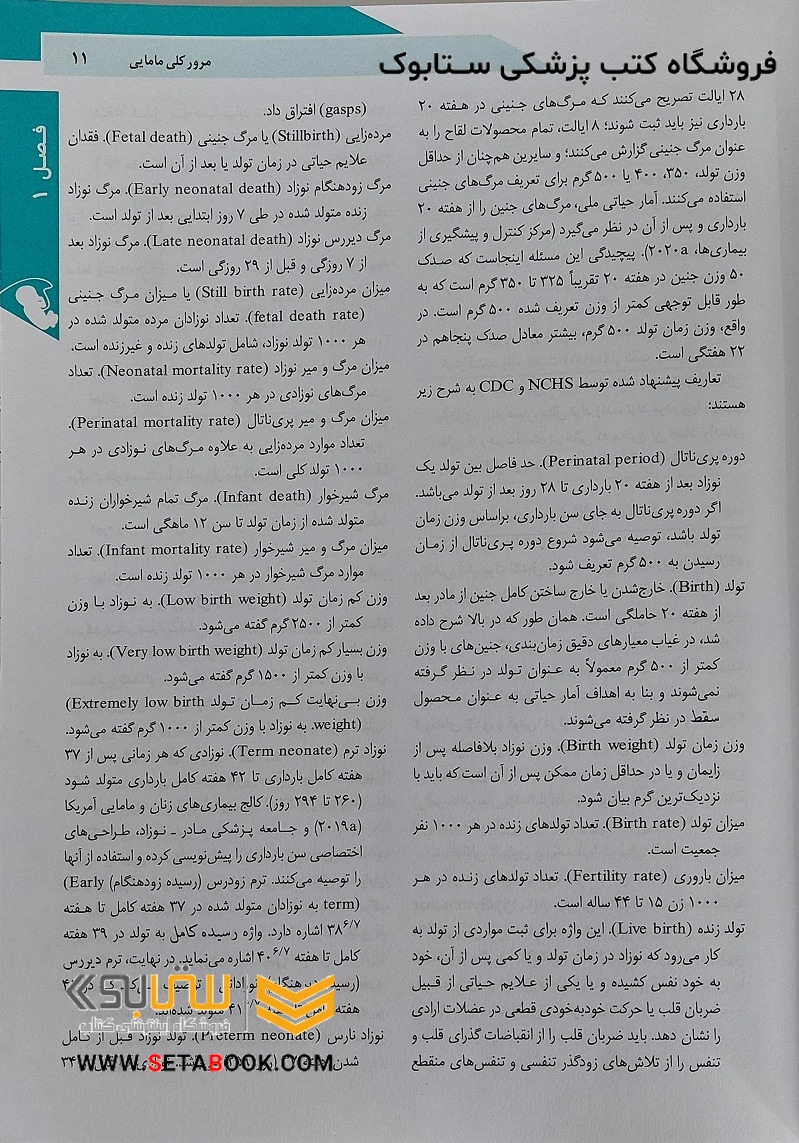 فروشگاه کتب پزشکی ستابوک
مرور کلی مامایی
۱۱
فصل ۱
۲۸ ایالت تصریح می‌کنند که مرگ‌های جنینی در هفته ۲۰
بارداری نیز باید ثبت شوند؛ ۸ ایالت، تمام محصولات لقاح را به
عنوان مرگ جنینی گزارش می‌کنند؛ و سایرین هم‌چنان از حداقل
وزن تولد، ۳۵۰، ۴۰۰ یا ۵۰۰ گرم برای تعریف مرگ‌های جنینی
استفاده می‌کنند. آمار حیاتی ملی، مرگ‌های جنین را از هفته ۲۰
بارداری و پس از آن در نظر می‌گیرد (مرکز کنترل و پیشگیری از
بیماری‌ها، ۲۰۲۰a). پیچیدگی این مسئله اینجاست که صدک
۵۰ وزن جنین در هفته ۲۰ تقریباً ۳۲۵ تا ۳۵۰ گرم است که به
طور قابل توجهی کمتر از وزن تعریف شده ۵۰۰ گرم است. در
واقع، وزن زمان تولد ۵۰۰ گرم، بیشتر معادل صدک پنجاهم در
۲۲ هفتگی است.
تعاریف پیشنهاد شده توسط NCHS و CDC به شرح زیر
هستند:
دوره پری‌ناتال (Perinatal period). حد فاصل بین تولد یک
نوزاد بعد از هفته ۲۰ بارداری تا ۲۸ روز بعد از تولد می‌باشد.
اگر دوره پری‌ناتال به جای سن بارداری، براساس وزن زمان
تولد باشد، توصیه می‌شود شروع دوره پری‌ناتال از زمان
رسیدن به ۵۰۰ گرم تعریف شود.
تولد (Birth). خارج‌شدن یا خارج ساختن کامل جنین از مادر بعد
از هفته ۲۰ حاملگی است. همان طور که در بالا شرح داده
شد، در غیاب معیارهای دقیق زمان‌بندی، جنین‌های با وزن
کمتر از ۵۰۰ گرم معمولاً به عنوان تولد در نظر گرفته
نمی‌شوند و بنا به اهداف آمار حیاتی به عنوان محصول
سقط در نظر گرفته می‌شوند.
وزن زمان تولد (Birth weight). وزن نوزاد بلافاصله پس از
زایمان و یا در حداقل زمان ممکن پس از آن است که باید با
نزدیک‌ترین گرم بیان شود.
میزان تولد (Birth rate). تعداد تولدهای زنده در هر ۱۰۰۰ نفر
جمعیت است.
میزان باروری (Fertility rate). تعداد تولدهای زنده در هر
۱۰۰۰ زن ۱۵ تا ۴۴ ساله است.
تولد زنده (Live birth). این واژه برای ثبت مواردی از تولد به
کار می‌رود که نوزاد در زمان تولد و یا کمی پس از آن، خود
به خود نفس کشیده و یا یکی از علایم حیاتی از قبیل
ضربان قلب یا حرکت خودبه‌خودی قطعی در عضلات ارادی
را نشان دهد. باید ضربان قلب را از انقباضات گذرای قلب و
تنفس را از تلاش‌های زودگذر تنفسی و تنفس‌های منقطع
(gasps) افتراق داد.
مرده‌زایی (Stillbirth) یا مرگ جنینی (Fetal death). فقدان
علایم حیاتی در زمان تولد یا بعد از آن است.
مرگ زودهنگام نوزاد (Early neonatal death). مرگ نوزاد
زنده متولد شده در طی ۷ روز ابتدایی بعد از تولد است.
مرگ دیررس نوزاد (Late neonatal death). مرگ نوزاد بعد
از ۷ روزگی و قبل از ۲۹ روزگی است.
میزان مرده‌زایی (Still birth rate) یا میزان مرگ جنینی
(fetal death rate). تعداد نوزادان مرده متولد شده در
هر ۱۰۰۰ تولد نوزاد، شامل تولدهای زنده و غیرزنده است.
میزان مرگ و میر نوزاد (Neonatal mortality rate). تعداد
مرگ‌های نوزادی در هر ۱۰۰۰ تولد زنده است.
میزان مرگ و میر پری‌ناتال (Perinatal mortality rate).
تعداد موارد مرده‌زایی به علاوه مرگ‌های نوزادی در هر
۱۰۰۰ تولد کلی است.
مرگ شیرخوار (Infant death). مرگ تمام شیرخواران زنده
متولد شده از زمان تولد تا سن ۱۲ ماهگی است.
میزان مرگ و میر شیرخوار (Infant mortality rate). تعداد
موارد مرگ شیرخوار در هر ۱۰۰۰ تولد زنده است.
وزن کم زمان تولد (Low birth weight). به نوزاد با وزن
کمتر از ۲۵۰۰ گرم گفته می‌شود.
وزن بسیار کم زمان تولد (Very low birth weight). به نوزاد
با وزن کمتر از ۱۵۰۰ گرم گفته می‌شود.
وزن بی‌نهایت کم زمان تولد (Extremely low birth
weight). به نوزاد با وزن کمتر از ۱۰۰۰ گرم گفته می‌شود.
نوزاد ترم (Term neonate). نوزادی که هر زمانی پس از ۳۷
هفته کامل بارداری تا ۴۲ هفته کامل بارداری متولد شود
(۲۶۰ تا ۲۹۴ روز). کالج بیماری‌های زنان و مامایی آمریکا
(۲۰۱۹a) و جامعه پزشکی مادر ـ نوزاد، طراحی‌های
اختصاصی سن بارداری را پیش‌نویسی کرده و استفاده از آنها
را توصیه می‌کنند. ترم زودرس (رسیده زودهنگام) (Early
term) به نوزادان متولد شده در ۳۷ هفته کامل تا هفته
۳۸۶/۷ اشاره دارد. واژه رسیده کامل به تولد در ۳۹ هفته
کامل تا هفته ۴۰۶/۷ اشاره می‌نماید. در نهایت، ترم دیررس
هفته متولد شده‌اند.
نوزاد نارس (Preterm neonate). تولد نوزاد قبل از کامل
شدن
ستابوک
فروشگاه اینترنتی کتاب
WWW.SETABOOK.COM